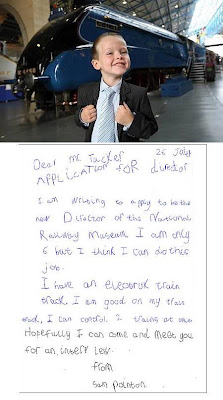 26 July
Dear Mr Tucker
APPLICATION FOR
I am writing to apply to be the
new Director of the National
Railway Museum I am only
6 but I think I can do this
job.
I have an electrik train
track, I am good on my train
track, I can control 2 trains at once
Hopefully I can come and meet you
for an
from
Sam Pointon